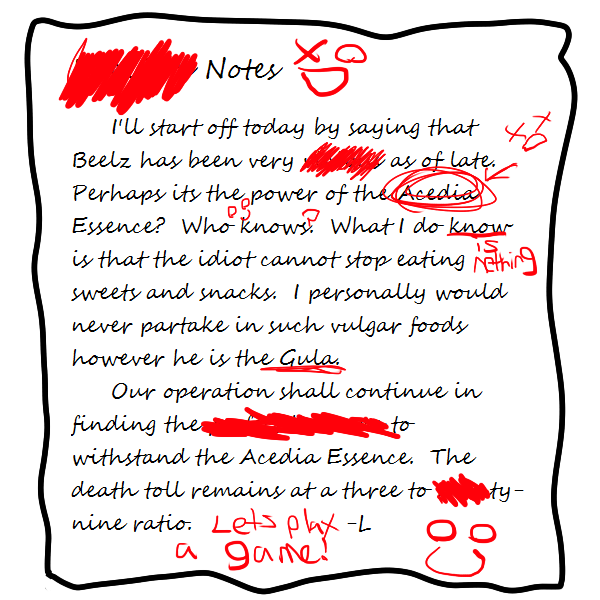 Notes
I'll start off today by saying that
Beelz has been very as of late.
Perhaps its the power of the Acedia
Essence? Who knows? What I do know
is nothing
is that the idiot cannot stop eating
sweets and snacks. I personally would
never partake in such vulgar foods
however he is the Gula.
Our operation shall continue in
finding the to
withstand the Acedia Essence. The
death toll remains at a three to ty-
nine ratio. Lets play -L
a game!